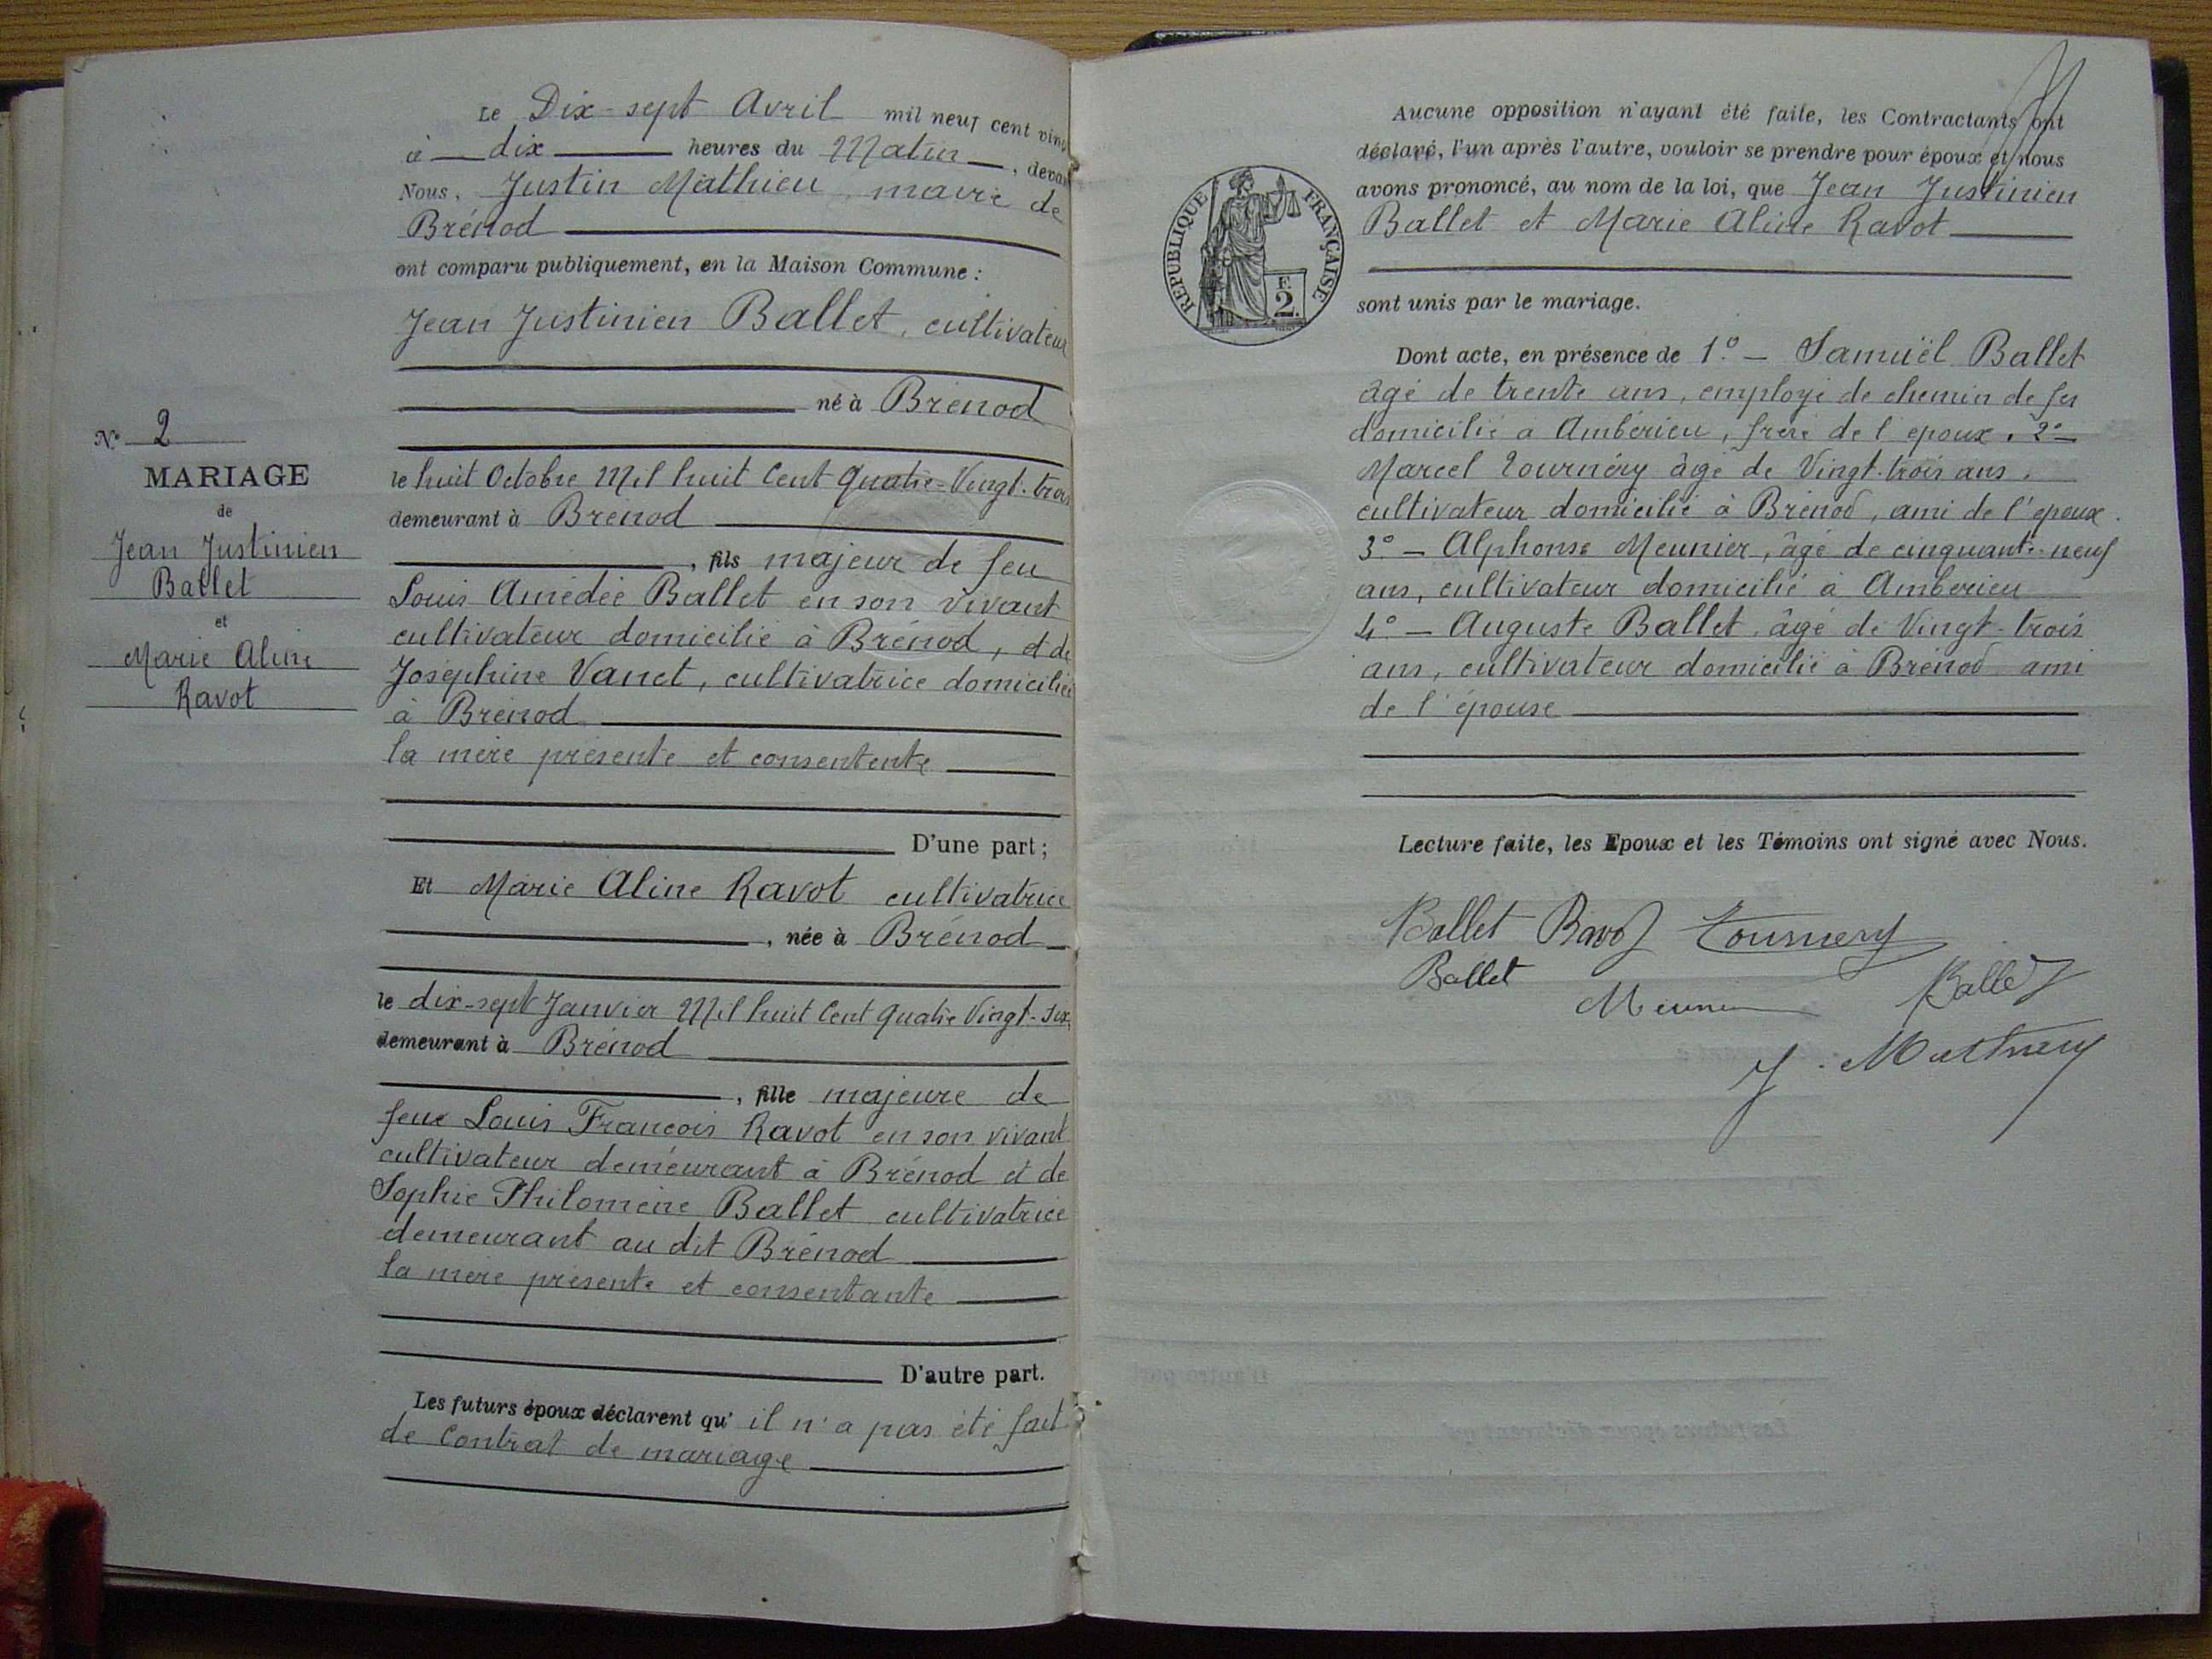 Le Dix-sept Avril mil neuf cent vin
à dix heures du Matin, devan
Nous, Justin Mathieu, maire de
Brénod
ont comparu publiquement, en la Maison Commune :
Jean Justinien Ballet, cultivateur
né à Brénod
le huit Octobre Mil huit Cent Quatre-Vingt-trois
demeurant à Brénod
, fils majeur de feu
Louis Amédée Ballet en son vivant
cultivateur domicilié à Brénod, et de
Joséphine Vanet, cultivatrice domiciliée
à Brénod
la mère présente et consentente
D'une part ;
Et Marie Aline Ravot cultivatrice
, née à Brénod
le dix-sept Janvier Mil huit Cent Quatre Vingt-Six,
demeurant à Brénod
, fille majeure de
feue Louis François Ravot en son vivant
cultivateur demeurant à Brénod et de
Sophie Philomène Ballet cultivatrice
demeurant au dit Brénod
la mère présente et consentante
D'autre part.
Les futurs époux déclarent qu' il n'a pas été fait
de Contrat de mariage
N° 2
MARIAGE
de
Jean Justinien
Ballet
et
Marie Aline
Ravot
Aucune opposition n'ayant été faite, les Contractants ont
déclaré, l'un après l'autre, vouloir se prendre pour époux et nous
avons prononcé, au nom de la loi, que Jean Justinien
Ballet et Marie Aline Ravot
sont unis par le mariage.
REPUBLIQUE FRANÇAISE
F.
2.
Dont acte, en présence de 1° - Samuël Ballet
âgé de trente ans, employé de chemin de fer
domicilié à Ambérieu, frère de l'époux. 2° -
Marcel Tournéry âgé de Vingt-trois ans,
cultivateur domicilié à Brénod, ami de l'époux.
3° - Alphonse Meunier, âgé de cinquante-neuf
ans, cultivateur domicilié à Ambérieu
4° - Auguste Ballet, âgé de Vingt-trois
ans, cultivateur domicilié à Brénod ami
de l'épouse
Lecture faite, les Epoux et les Témoins ont signé avec Nous.
Ballet Ravot Tournery
Ballet
Meunier Ballet
J. Mathieu